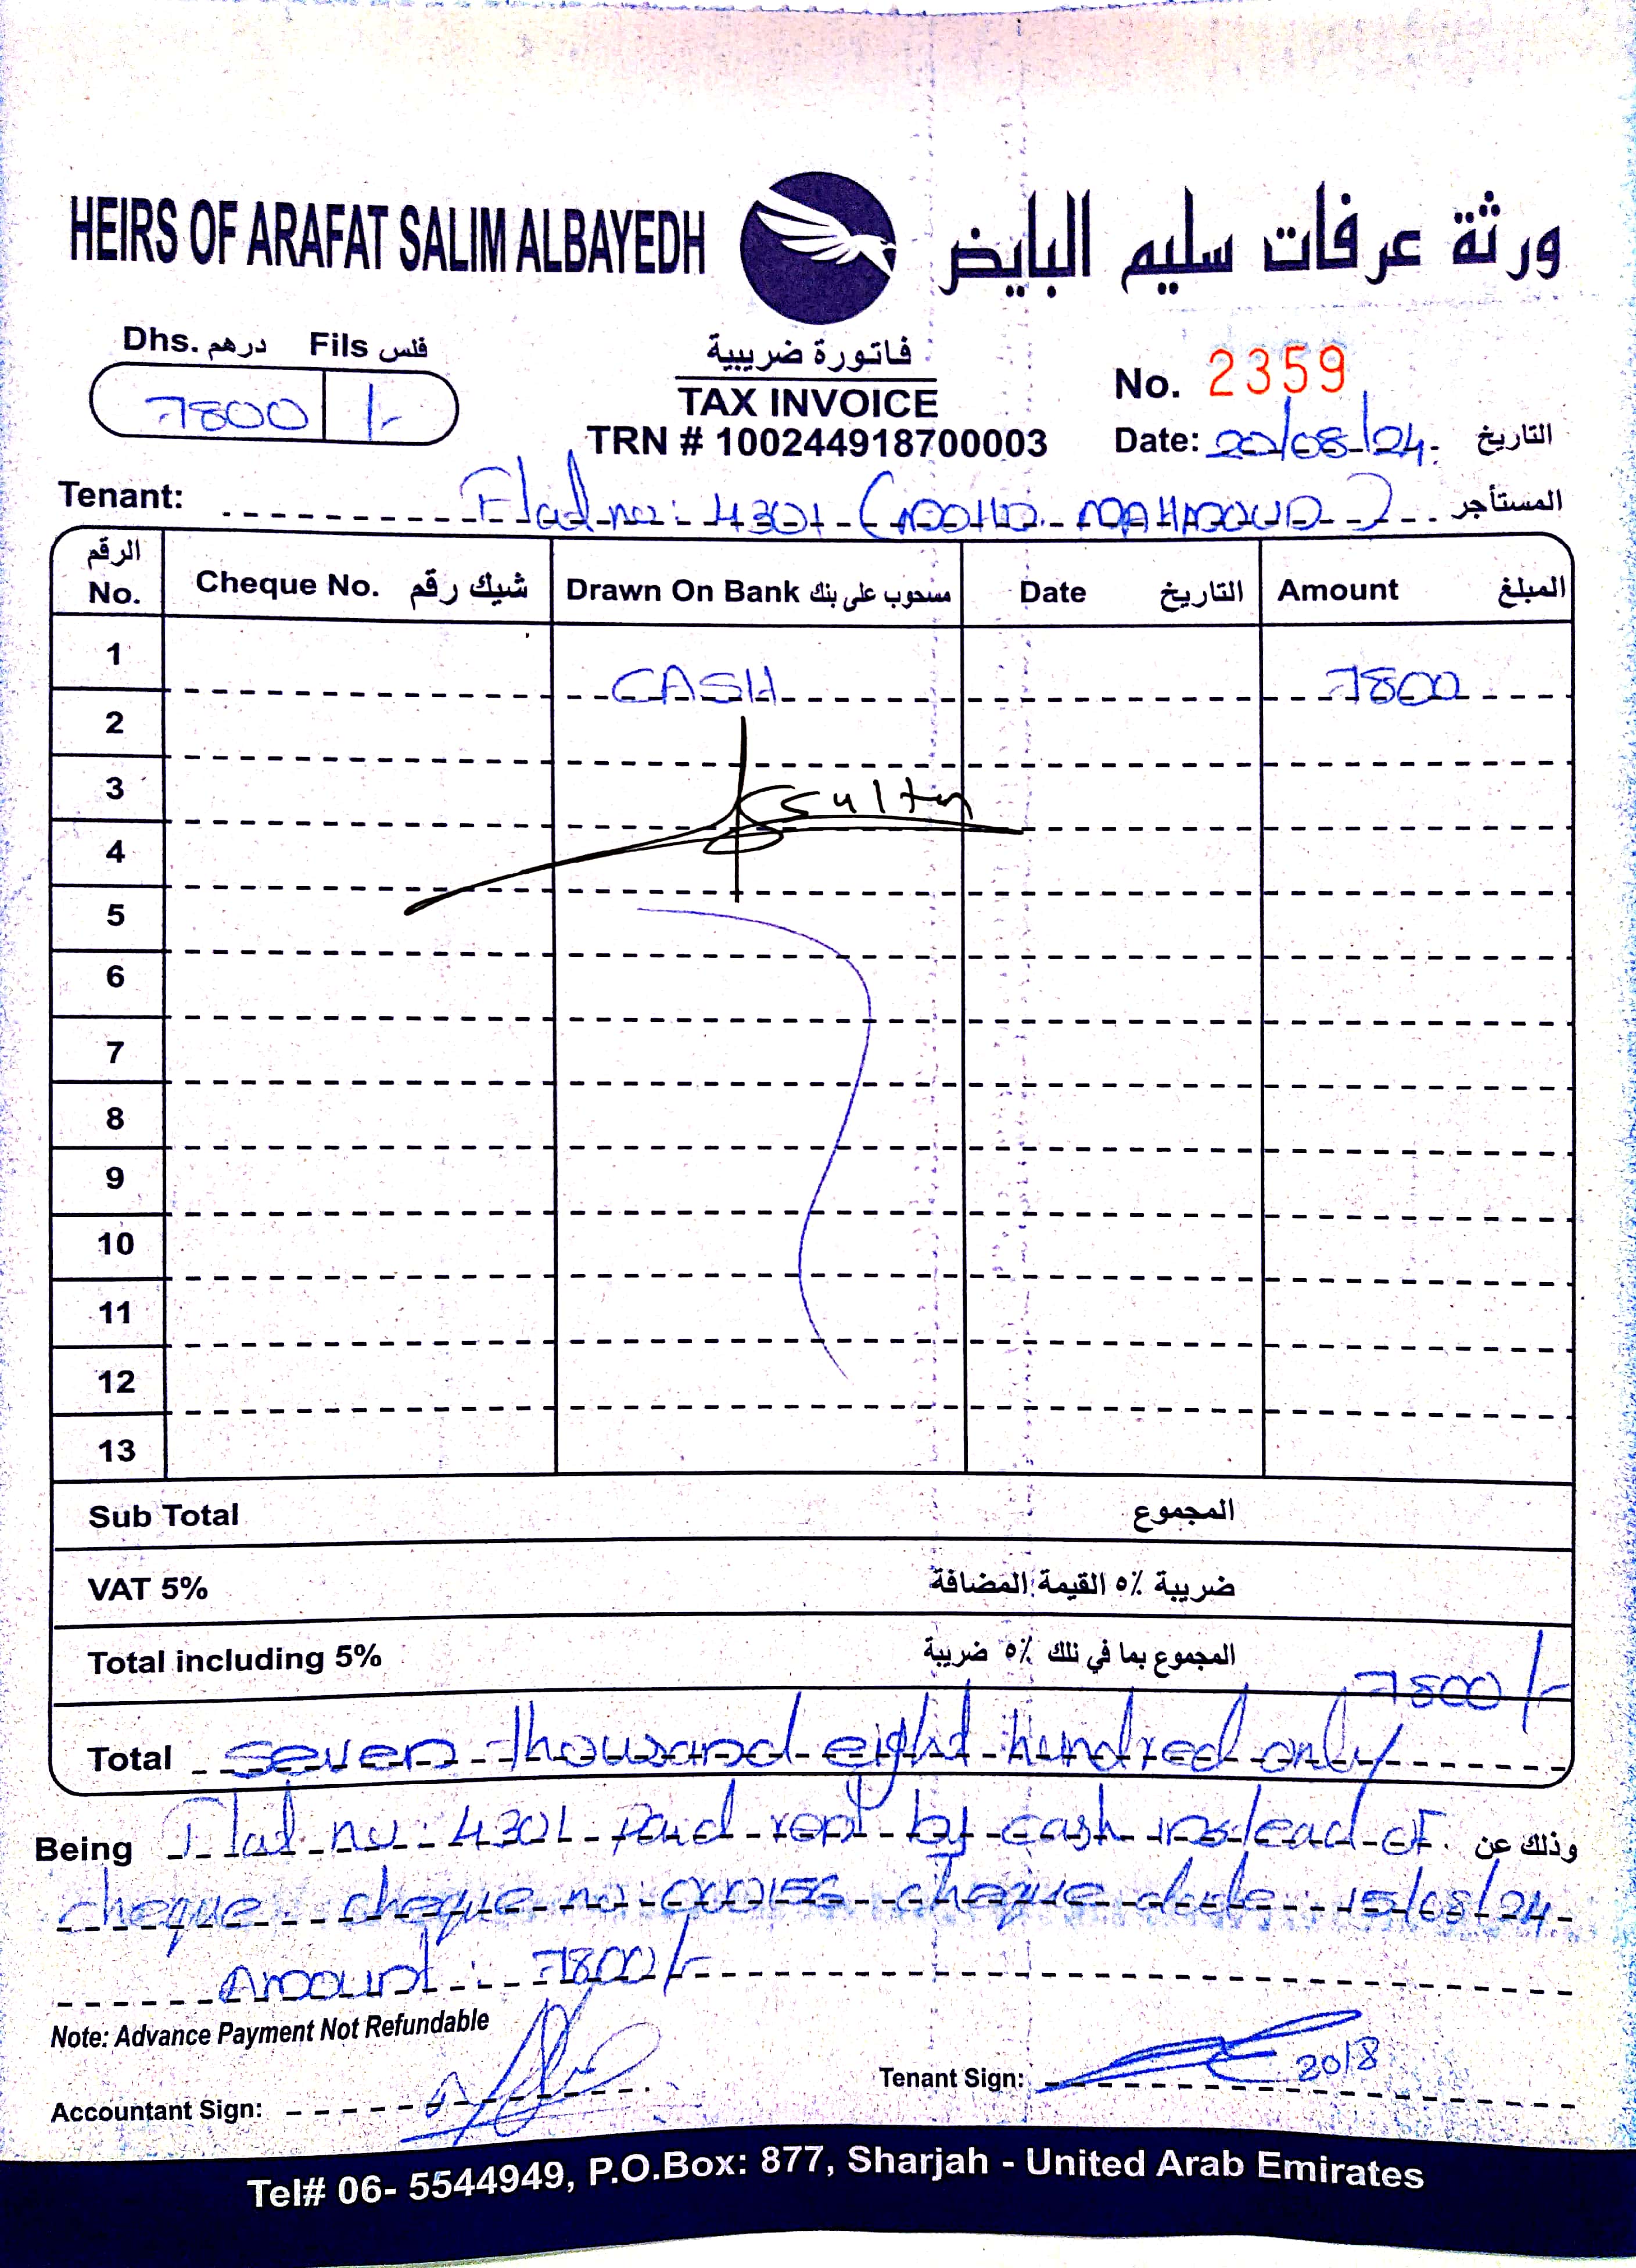 HEIRS OF ARAFAT SALIM ALBAYEDH ورثة عرفات سليم البايض
Dhs. درهم Fils فلس
7800 /-
فاتورة ضريبية
TAX INVOICE
TRN # 100244918700003
No. 2359
Date: 20/08/24. التاريخ
Tenant: Flat no: 4301 (MOHD. MAHMOUD) المستأجر
الرقم No. Cheque No. شيك رقم Drawn On Bank مسحوب على بنك Date التاريخ Amount المبلغ
1 CASH 7800
2
3 Sultan
4
5
6
7
8
9
10
11
12
13
Sub Total المجموع
VAT 5% ضريبة ٥٪ القيمة المضافة
Total including 5% المجموع بما في ذلك ٥٪ ضريبة 7800/-
Total seven thousand eight hundred only
Being Flat no: 4301 paid rent by cash instead of. وذلك عن
cheque. cheque no: 000156 cheque date: 15/08/24
Amount: 7800/-
Note: Advance Payment Not Refundable
Accountant Sign: Tenant Sign: 20/8
Tel# 06- 5544949, P.O.Box: 877, Sharjah - United Arab Emirates